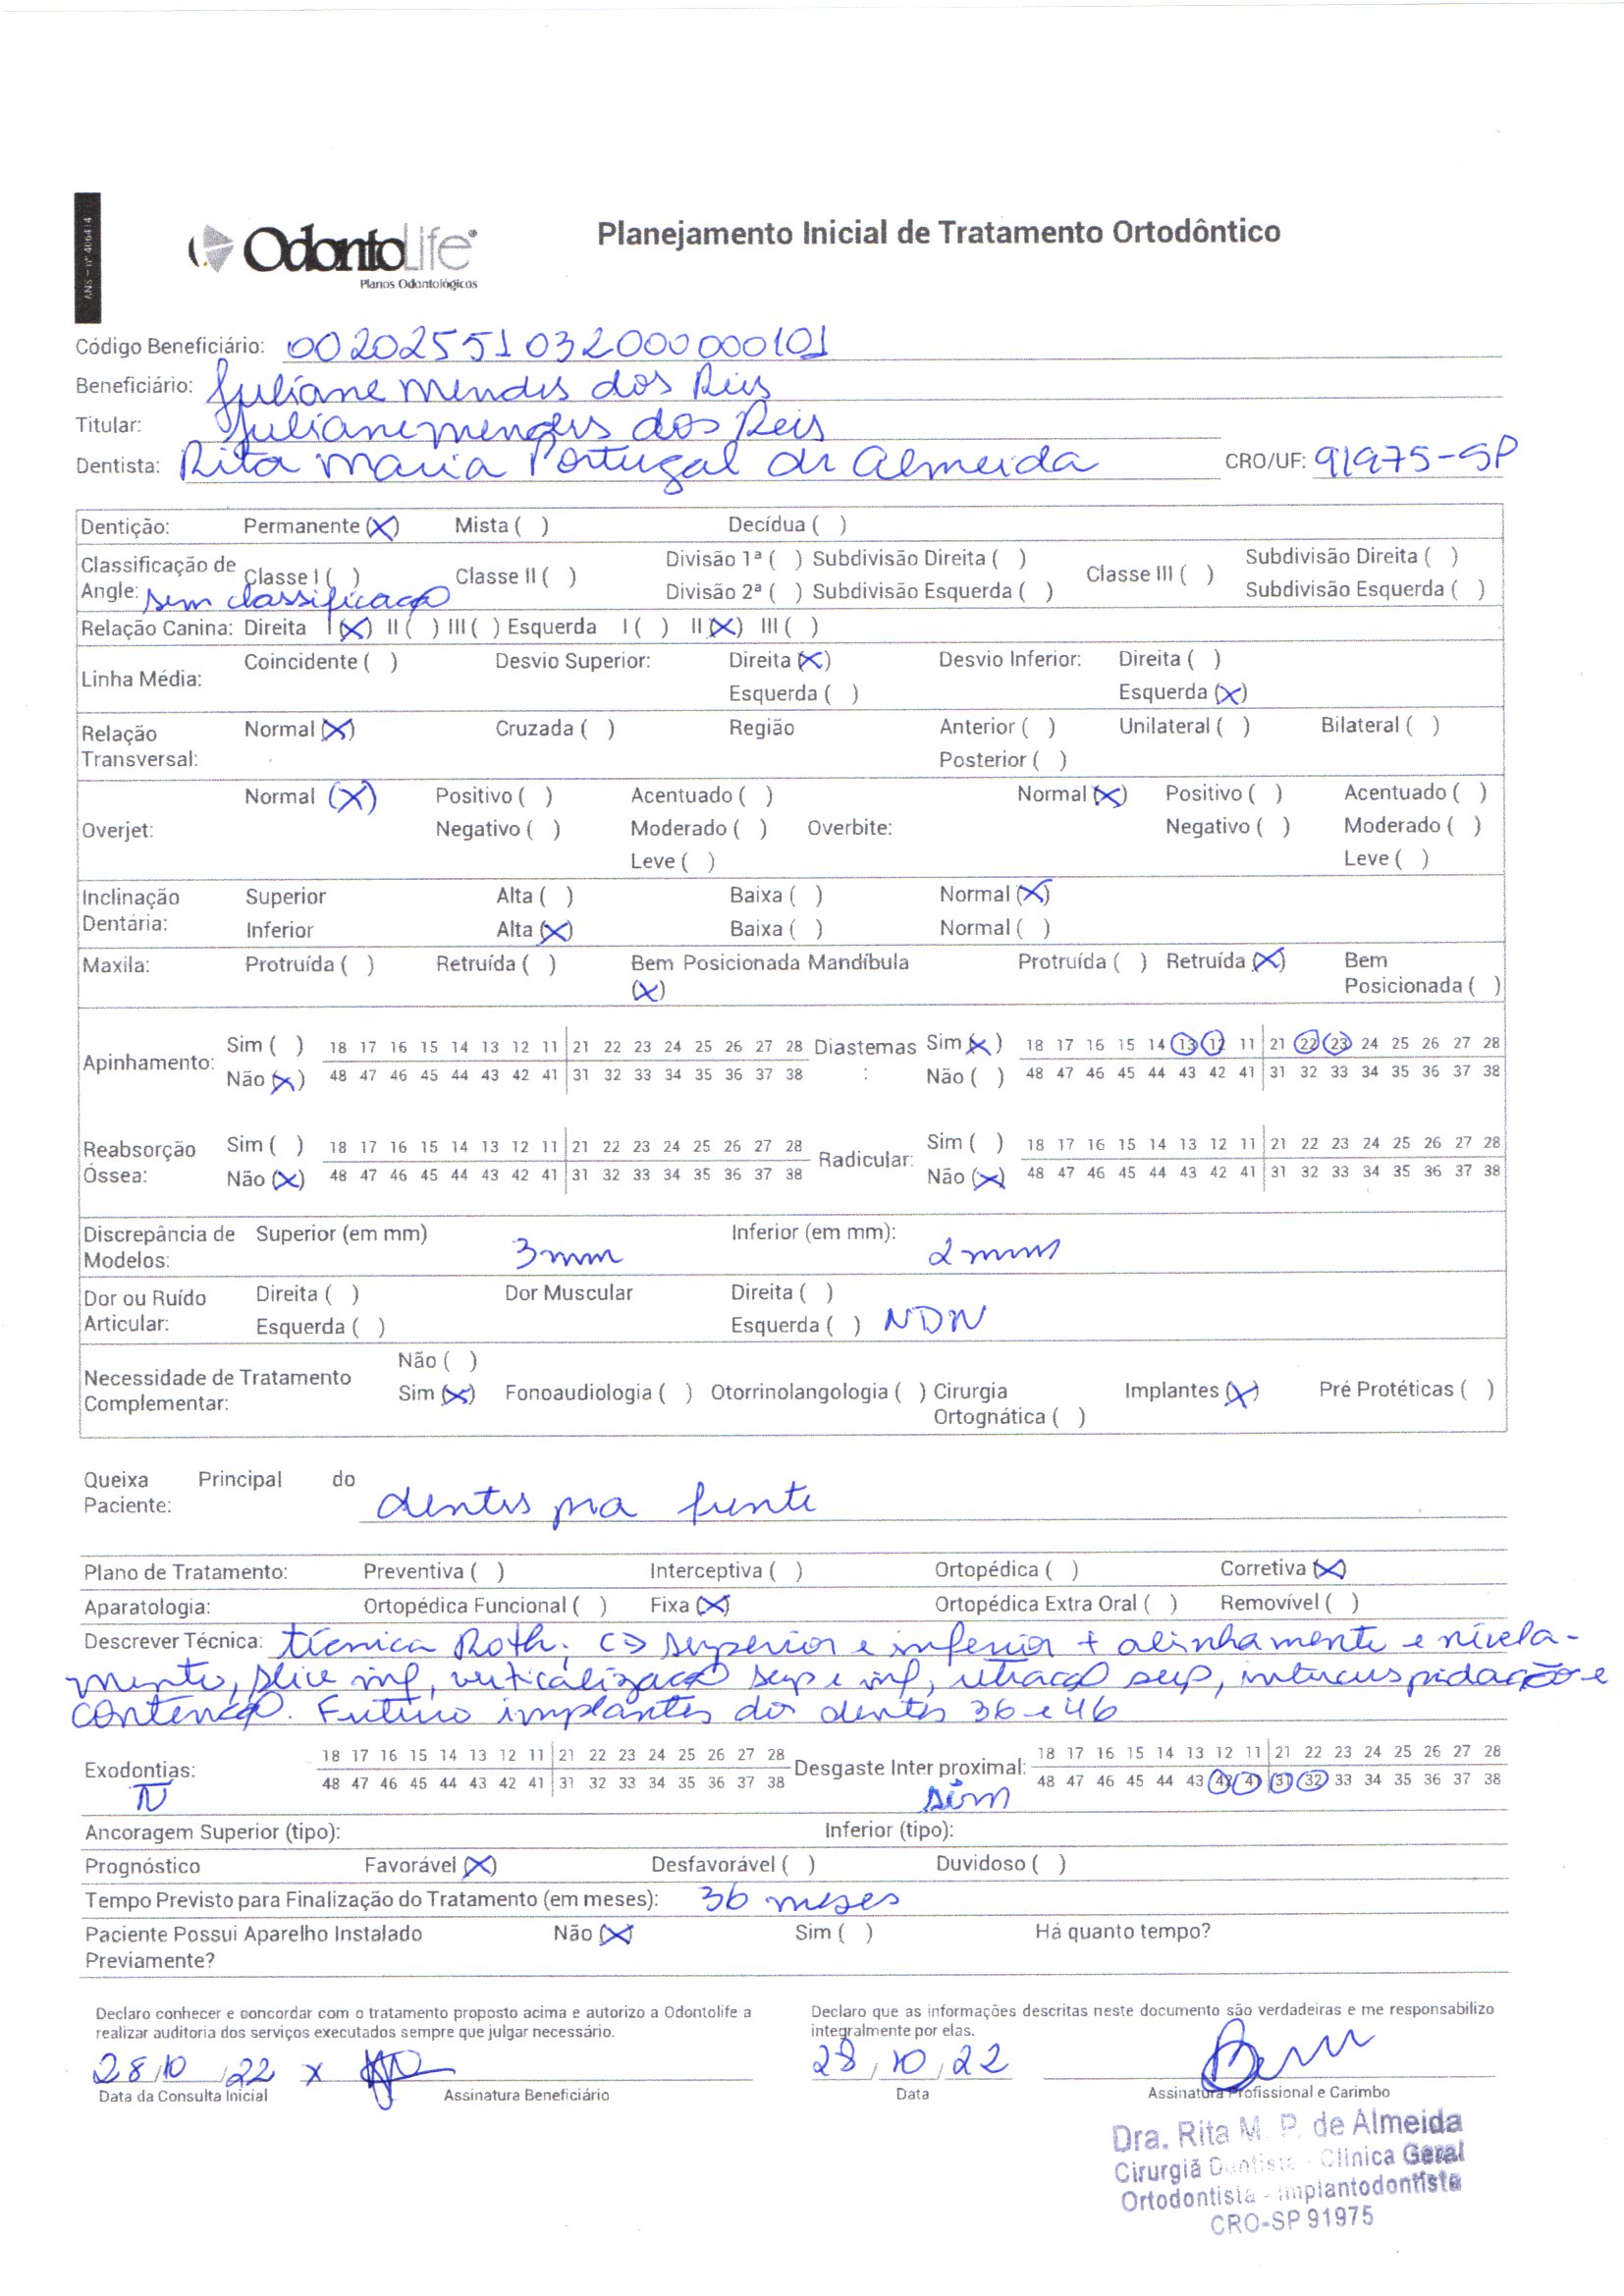 ANS - nº 406414
OdontoLife
Planos Odontológicos
Planejamento Inicial de Tratamento Ortodôntico
Código Beneficiário: 00202551032000000101
Beneficiário: Juliane Mendes dos Reis
Titular: Juliane mendes dos Reis
Dentista: Rita Maria Portugal de Almeida CRO/UF: 91975-SP
Dentição: Permanente (X) Mista ( ) Decídua ( )
Classificação de Angle: Classe I ( ) Classe II ( ) Divisão 1ª ( ) Subdivisão Direita ( ) Classe III ( ) Subdivisão Direita ( )
sem classificação Divisão 2ª ( ) Subdivisão Esquerda ( ) Subdivisão Esquerda ( )
Relação Canina: Direita I (X) II ( ) III ( ) Esquerda I ( ) II (X) III ( )
Linha Média: Coincidente ( ) Desvio Superior: Direita (X) Desvio Inferior: Direita ( )
Esquerda ( ) Esquerda (X)
Relação Transversal: Normal (X) Cruzada ( ) Região Anterior ( ) Unilateral ( ) Bilateral ( )
Posterior ( )
Overjet: Normal (X) Positivo ( ) Acentuado ( ) Overbite: Normal (X) Positivo ( ) Acentuado ( )
Negativo ( ) Moderado ( ) Negativo ( ) Moderado ( )
Leve ( ) Leve ( )
Inclinação Dentária: Superior Alta ( ) Baixa ( ) Normal (X)
Inferior Alta (X) Baixa ( ) Normal ( )
Maxila: Protruída ( ) Retruída ( ) Bem Posicionada (X) Mandíbula Protruída ( ) Retruída (X) Bem Posicionada ( )
Apinhamento: Sim ( ) 18 17 16 15 14 13 12 11 21 22 23 24 25 26 27 28 Diastemas: Sim (X) 18 17 16 15 14 13 12 11 21 22 23 24 25 26 27 28
Não (X) 48 47 46 45 44 43 42 41 31 32 33 34 35 36 37 38 Não ( ) 48 47 46 45 44 43 42 41 31 32 33 34 35 36 37 38
Reabsorção Óssea: Sim ( ) 18 17 16 15 14 13 12 11 21 22 23 24 25 26 27 28 Radicular: Sim ( ) 18 17 16 15 14 13 12 11 21 22 23 24 25 26 27 28
Não (X) 48 47 46 45 44 43 42 41 31 32 33 34 35 36 37 38 Não (X) 48 47 46 45 44 43 42 41 31 32 33 34 35 36 37 38
Discrepância de Modelos: Superior (em mm) 3mm Inferior (em mm): 2mm
Dor ou Ruído Articular: Direita ( ) Dor Muscular Direita ( )
Esquerda ( ) Esquerda ( ) NDN
Necessidade de Tratamento Complementar: Não ( )
Sim (X) Fonoaudiologia ( ) Otorrinolangologia ( ) Cirurgia Ortognática ( ) Implantes (X) Pré Protéticas ( )
Queixa Principal do Paciente: dentes pra frente
Plano de Tratamento: Preventiva ( ) Interceptiva ( ) Ortopédica ( ) Corretiva (X)
Aparatologia: Ortopédica Funcional ( ) Fixa (X) Ortopédica Extra Oral ( ) Removível ( )
Descrever Técnica: técnica Roth, superior e inferior + alinhamento e nivela-
mento, slice inf, verticalização sup e inf, retração sup, intercuspidação e
contenção. Futuro implantes dos dentes 36 e 46
Exodontias: 18 17 16 15 14 13 12 11 21 22 23 24 25 26 27 28 Desgaste Inter proximal: 18 17 16 15 14 13 12 11 21 22 23 24 25 26 27 28
N 48 47 46 45 44 43 42 41 31 32 33 34 35 36 37 38 sim 48 47 46 45 44 43 42 41 31 32 33 34 35 36 37 38
Ancoragem Superior (tipo): Inferior (tipo):
Prognóstico Favorável (X) Desfavorável ( ) Duvidoso ( )
Tempo Previsto para Finalização do Tratamento (em meses): 36 meses
Paciente Possui Aparelho Instalado Previamente? Não (X) Sim ( ) Há quanto tempo?
Declaro conhecer e concordar com o tratamento proposto acima e autorizo a Odontolife a
realizar auditoria dos serviços executados sempre que julgar necessário.
Declaro que as informações descritas neste documento são verdadeiras e me responsabilizo
integralmente por elas.
28/10/22 x 28/10/22
Data da Consulta Inicial Assinatura Beneficiário Data Assinatura Profissional e Carimbo
Dra. Rita M. P. de Almeida
Cirurgiã Dentista - Clinica Geral
Ortodontista - Implantodontista
CRO-SP 91975